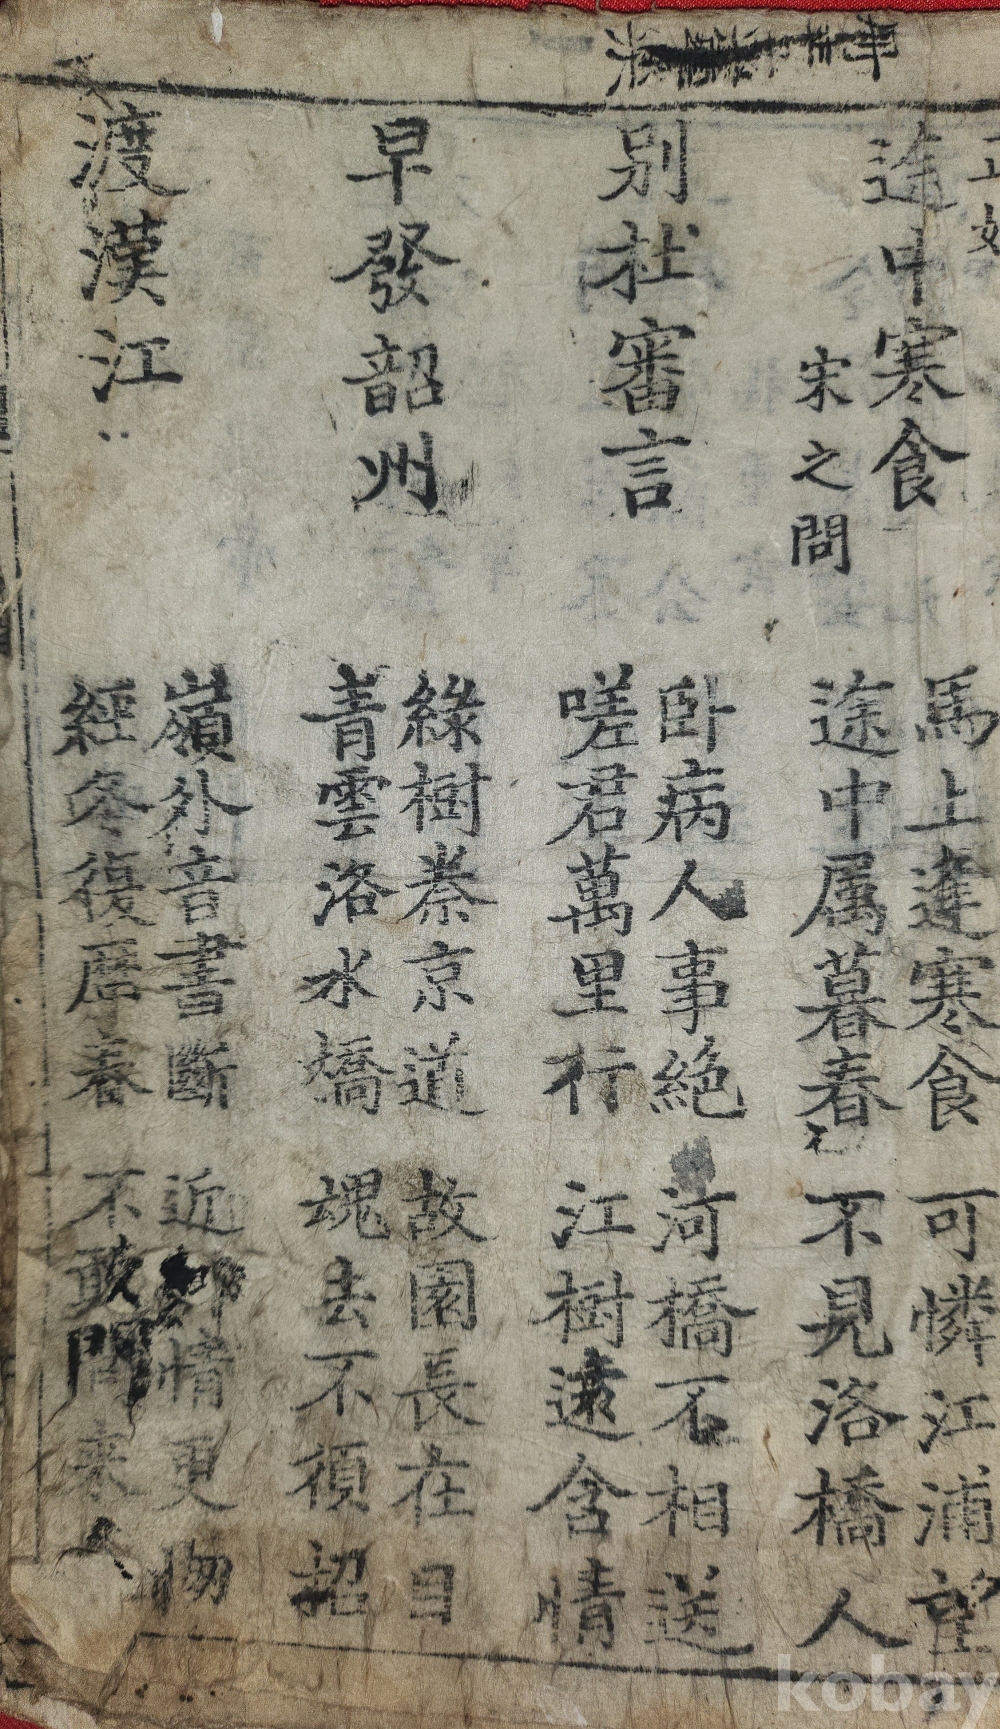 途中寒食
宋之問
馬上逢寒食 可憐江浦望
途中属暮春 不見洛橋人
別杜審言
卧病人事絶 河橋不相送
嗟君萬里行 江樹遠含情
早發韶州
綠樹秦京道 故園長在目
青雲洛水橋 魂去不須招
渡漢江
嶺外音書斷 近鄉情更
經冬復歷春 不敢問来人
kobay